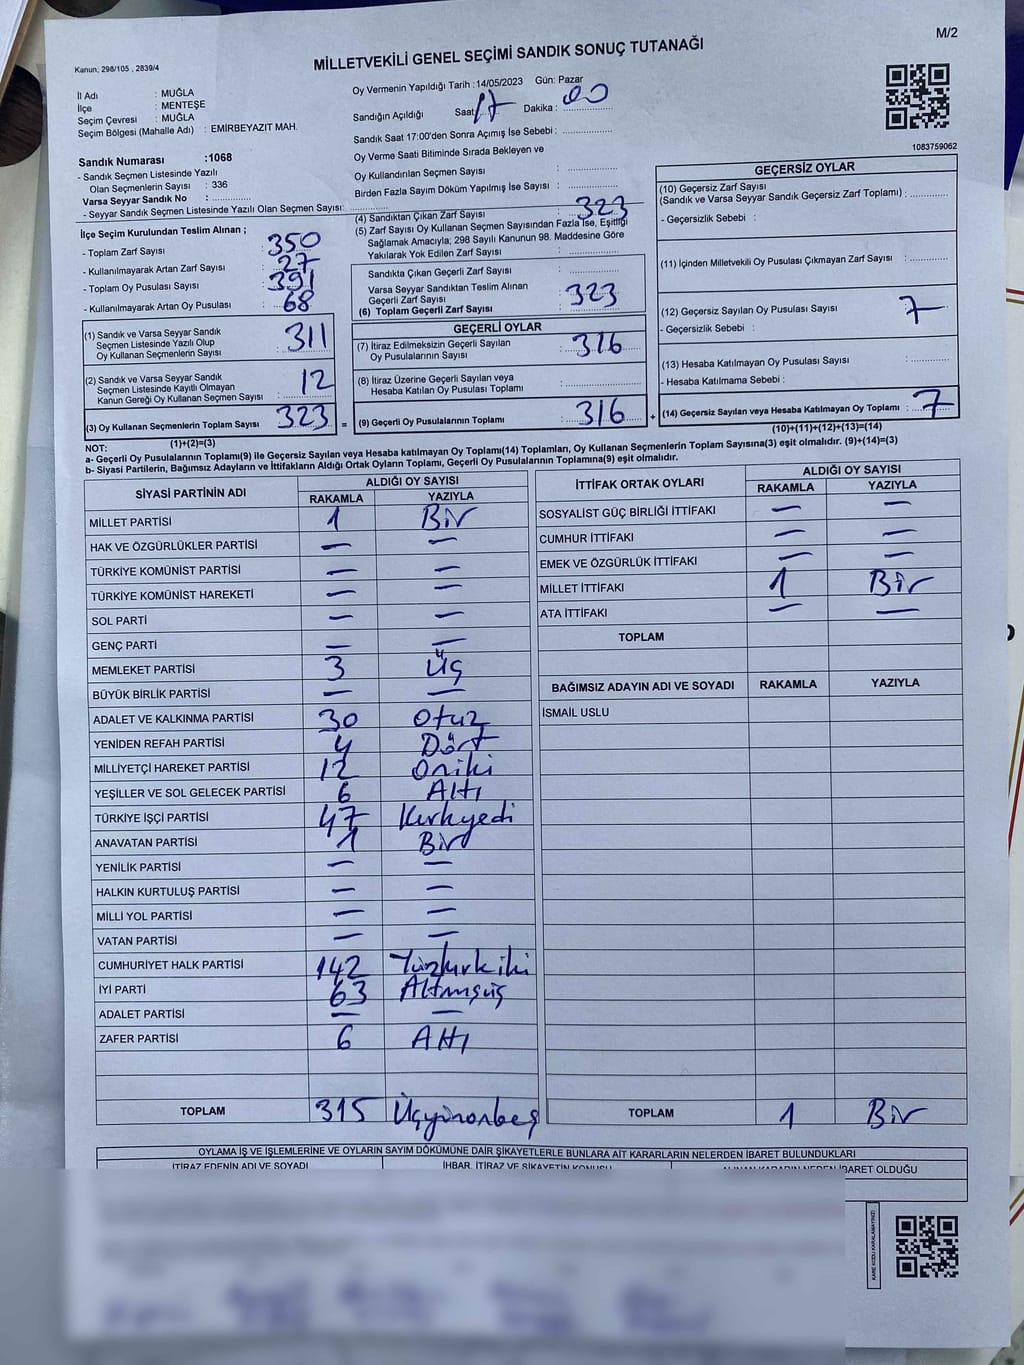 M/2
Kanun; 298/105 , 2839/4
MİLLETVEKİLİ GENEL SEÇİMİ SANDIK SONUÇ TUTANAĞI
İl Adı : MUĞLA
İlçe : MENTEŞE
Seçim Çevresi : MUĞLA
Seçim Bölgesi (Mahalle Adı) : EMİRBEYAZIT MAH.
Sandık Numarası :1068
- Sandık Seçmen Listesinde Yazılı
Olan Seçmenlerin Sayısı : 336
Varsa Seyyar Sandık No :
- Seyyar Sandık Seçmen Listesinde Yazılı Olan Seçmen Sayısı:
Oy Vermenin Yapıldığı Tarih :14/05/2023 Gün: Pazar
Sandığın Açıldığı Saat 17 Dakika : 00
Sandık Saat 17:00'den Sonra Açımış İse Sebebi :
Oy Verme Saati Bitiminde Sırada Bekleyen ve
Oy Kullandırılan Seçmen Sayısı :
Birden Fazla Sayım Döküm Yapılmış İse Sayısı :
1083759062
İlçe Seçim Kurulundan Teslim Alınan ;
- Toplam Zarf Sayısı : 350
- Kullanılmayarak Artan Zarf Sayısı : 27
- Toplam Oy Pusulası Sayısı : 391
- Kullanılmayarak Artan Oy Pusulası : 68
(1) Sandık ve Varsa Seyyar Sandık
Seçmen Listesinde Yazılı Olup
Oy Kullanan Seçmenlerin Sayısı : 311
(2) Sandık ve Varsa Seyyar Sandık
Seçmen Listesinde Kayıtlı Olmayan
Kanun Gereği Oy Kullanan Seçmen Sayısı : 12
(3) Oy Kullanan Seçmenlerin Toplam Sayısı : 323
(1)+(2)=(3)
(4) Sandıktan Çıkan Zarf Sayısı : 323
(5) Zarf Sayısı Oy Kullanan Seçmen Sayısından Fazla İse, Eşitliği
Sağlamak Amacıyla; 298 Sayılı Kanunun 98. Maddesine Göre
Yakılarak Yok Edilen Zarf Sayısı :
Sandıkta Çıkan Geçerli Zarf Sayısı :
Varsa Seyyar Sandıktan Teslim Alınan
Geçerli Zarf Sayısı :
(6) Toplam Geçerli Zarf Sayısı : 323
GEÇERLİ OYLAR
(7) İtiraz Edilmeksizin Geçerli Sayılan
Oy Pusulalarının Sayısı : 316
(8) İtiraz Üzerine Geçerli Sayılan veya
Hesaba Katılan Oy Pusulası Toplamı :
= (9) Geçerli Oy Pusulalarının Toplamı : 316 +
GEÇERSİZ OYLAR
(10) Geçersiz Zarf Sayısı
(Sandık ve Varsa Seyyar Sandık Geçersiz Zarf Toplamı) :
- Geçersizlik Sebebi :
(11) İçinden Milletvekili Oy Pusulası Çıkmayan Zarf Sayısı :
(12) Geçersiz Sayılan Oy Pusulası Sayısı : 7
- Geçersizlik Sebebi :
(13) Hesaba Katılmayan Oy Pusulası Sayısı :
- Hesaba Katılmama Sebebi :
(14) Geçersiz Sayılan veya Hesaba Katılmayan Oy Toplamı : 7
(10)+(11)+(12)+(13)=(14)
NOT:
a- Geçerli Oy Pusulalarının Toplamı(9) ile Geçersiz Sayılan veya Hesaba katılmayan Oy Toplamı(14) Toplamları, Oy Kullanan Seçmenlerin Toplam Sayısına(3) eşit olmalıdır. (9)+(14)=(3)
b- Siyasi Partilerin, Bağımsız Adayların ve İttifakların Aldığı Ortak Oyların Toplamı, Geçerli Oy Pusulalarının Toplamına(9) eşit olmalıdır.
SİYASİ PARTİNİN ADI ALDIĞI OY SAYISI
RAKAMLA YAZIYLA
MİLLET PARTİSİ 1 Bir
HAK VE ÖZGÜRLÜKLER PARTİSİ — —
TÜRKİYE KOMÜNİST PARTİSİ — —
TÜRKİYE KOMÜNİST HAREKETİ — —
SOL PARTİ — —
GENÇ PARTİ — —
MEMLEKET PARTİSİ 3 Üç
BÜYÜK BİRLİK PARTİSİ — —
ADALET VE KALKINMA PARTİSİ 30 Otuz
YENİDEN REFAH PARTİSİ 4 Dört
MİLLİYETÇİ HAREKET PARTİSİ 12 Oniki
YEŞİLLER VE SOL GELECEK PARTİSİ 6 Altı
TÜRKİYE İŞÇİ PARTİSİ 47 Kırkyedi
ANAVATAN PARTİSİ 1 Bir
YENİLİK PARTİSİ — —
HALKIN KURTULUŞ PARTİSİ — —
MİLLİ YOL PARTİSİ — —
VATAN PARTİSİ — —
CUMHURİYET HALK PARTİSİ 142 Yüzkırkiki
İYİ PARTİ 63 Altmışüç
ADALET PARTİSİ — —
ZAFER PARTİSİ 6 Altı
TOPLAM 315 Üçyüzonbeş
İTTİFAK ORTAK OYLARI ALDIĞI OY SAYISI
RAKAMLA YAZIYLA
SOSYALİST GÜÇ BİRLİĞİ İTTİFAKI — —
CUMHUR İTTİFAKI — —
EMEK VE ÖZGÜRLÜK İTTİFAKI — —
MİLLET İTTİFAKI 1 Bir
ATA İTTİFAKI — —
TOPLAM
BAĞIMSIZ ADAYIN ADI VE SOYADI RAKAMLA YAZIYLA
İSMAİL USLU
TOPLAM 1 Bir
OYLAMA İŞ VE İŞLEMLERİNE VE OYLARIN SAYIM DÖKÜMÜNE DAİR ŞİKAYETLERLE BUNLARA AİT KARARLARIN NELERDEN İBARET BULUNDUKLARI
İTİRAZ EDENİN ADI VE SOYADI İHBAR, İTİRAZ VE ŞİKAYETİN KONUSU ALINAN KARARIN NEDEN İBARET OLDUĞU
KARE KODU KARALAMAYINIZ!